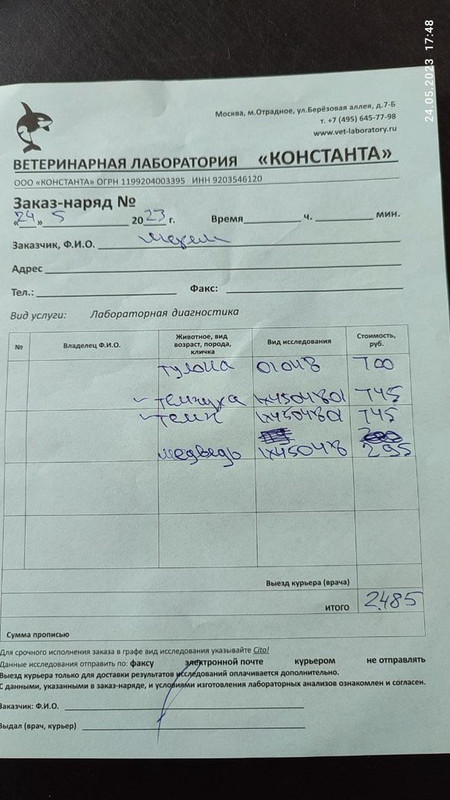 24.05.2023 17:48
Москва, м.Отрадное, ул.Берёзовая аллея, д.7-Б
т. +7 (495) 645-77-98
www.vet-laboratory.ru
ВЕТЕРИНАРНАЯ ЛАБОРАТОРИЯ «КОНСТАНТА»
ООО «КОНСТАНТА» ОГРН 1199204003395 ИНН 9203546120
Заказ-наряд №
«24» 5 2023 г. Время ч. мин.
Заказчик, Ф.И.О.
Адрес
Тел.: Факс:
Вид услуги: Лабораторная диагностика
№ Владелец Ф.И.О. Животное, вид возраст, порода, кличка Вид исследования Стоимость, руб.
01048 700
745
745
медведь 295
Выезд курьера (врача)
ИТОГО 2485
Сумма прописью
Для срочного исполнения заказа в графе вид исследования указывайте Cito!
Данные исследования отправить по: факсу электронной почте курьером не отправлять
Выезд курьера только для доставки результатов исследований оплачивается дополнительно.
С данными, указанными в заказ-наряде, и условиями изготовления лабораторных анализов ознакомлен и согласен.
Заказчик: Ф.И.О.
Выдал (врач, курьер)